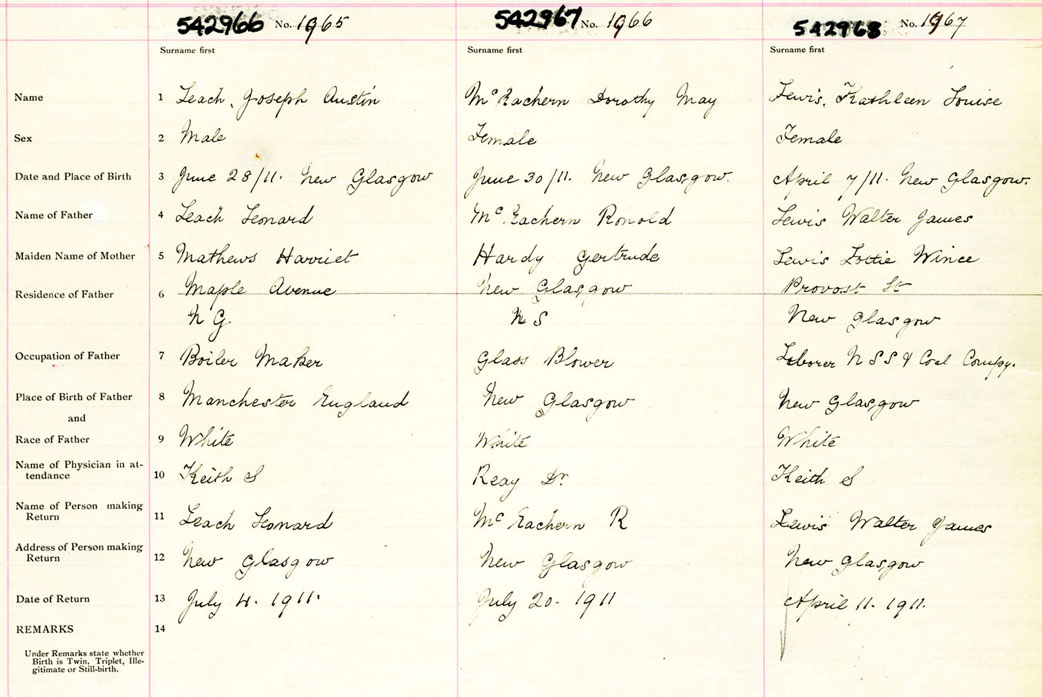 542966 No. 1965 542967 No. 1966 542968 No. 1967
Surname first Surname first Surname first
Name 1 Leach, Joseph Austin McEachern Dorothy May Lewis, Kathleen Louise
Sex 2 Male Female Female
Date and Place of Birth 3 June 28/11. New Glasgow June 30/11. New Glasgow. April 7/11. New Glasgow.
Name of Father 4 Leach Leonard McEachern Ronold Lewis Walter James
Maiden Name of Mother 5 Mathews Harriet Hardy Gertrude Lewis Lottie Wince
Residence of Father 6 Maple Avenue New Glasgow Provost St
N G. N S New Glasgow
Occupation of Father 7 Boiler Maker Glass Blower Laborer N S S & Coal Compy.
Place of Birth of Father 8 Manchester England New Glasgow New Glasgow
and
Race of Father 9 White White White
Name of Physician in at-
tendance 10 Keith S Reay Dr. Keith S
Name of Person making
Return 11 Leach Leonard McEachern R Lewis Walter James
Address of Person making
Return 12 New Glasgow New Glasgow New Glasgow
Date of Return 13 July 4. 1911. July 20. 1911 April 11. 1911.
REMARKS 14
Under Remarks state whether
Birth is Twin, Triplet, Ille-
gitimate or Still-birth.